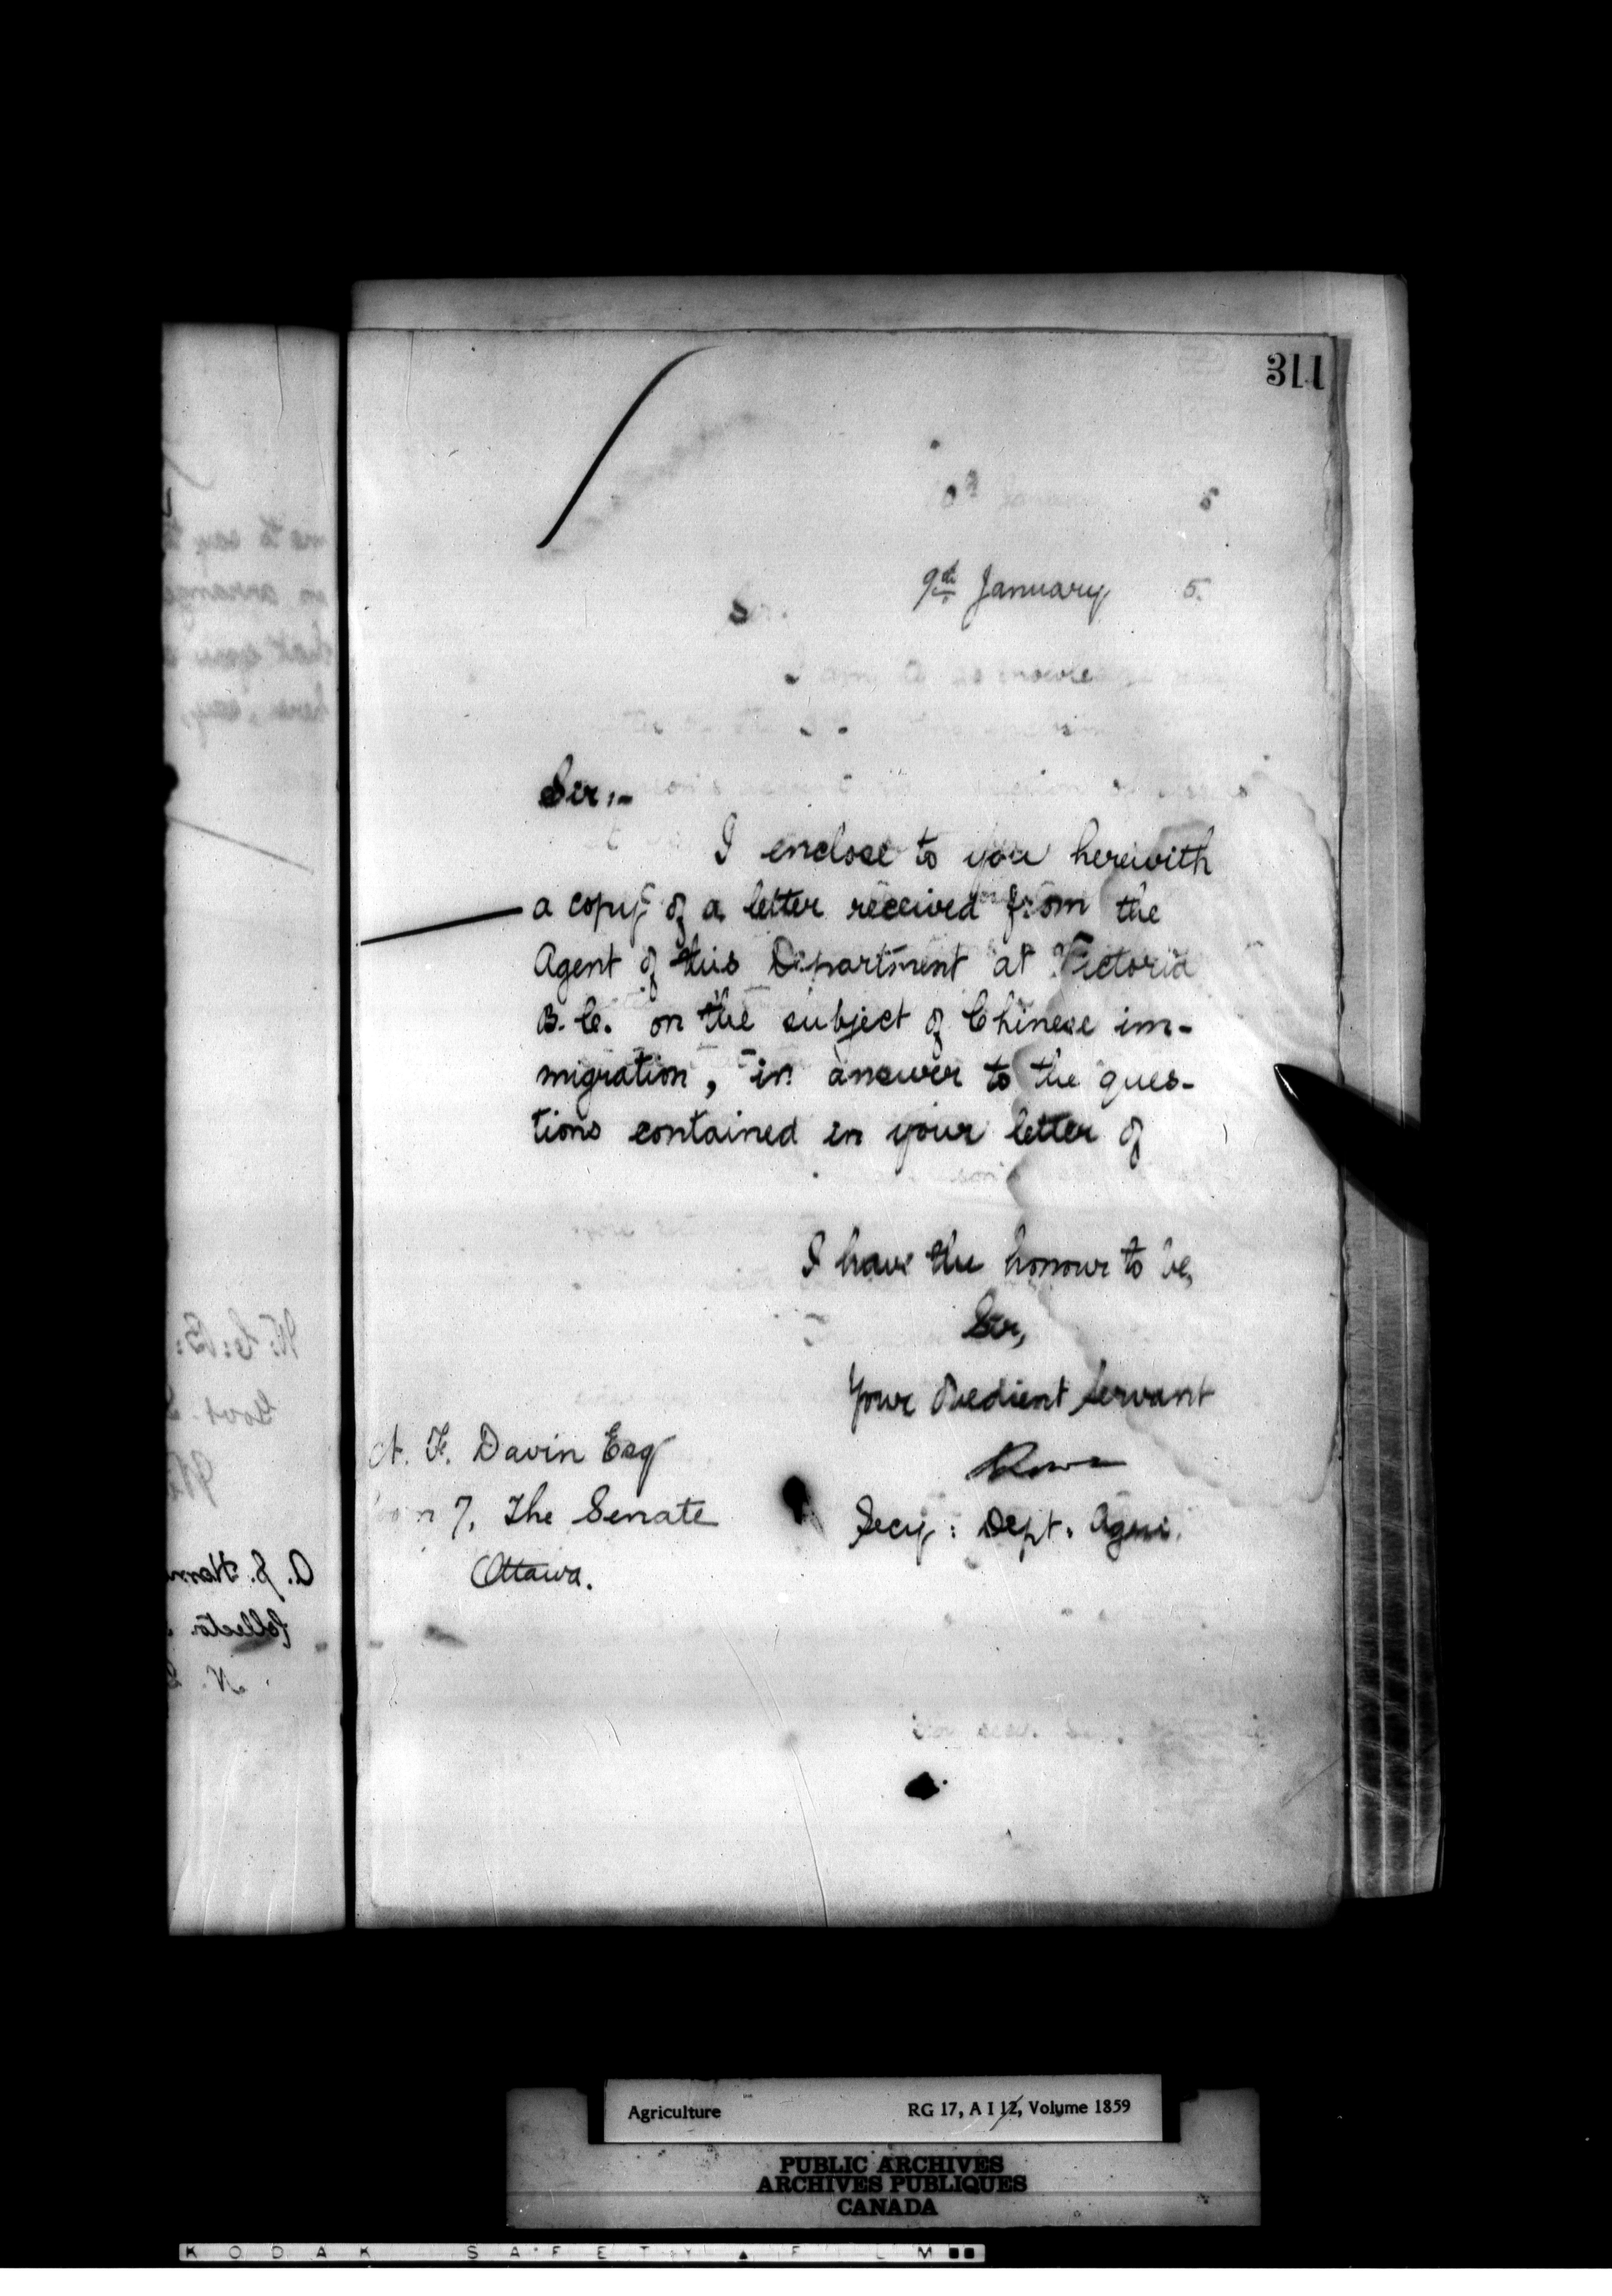 311
9th January 5.
Sir:-
I enclose to you herewith
a copy of a letter received from the
Agent of this Department at Victoria
B.C. on the subject of Chinese im-
migration, in answer to the ques-
tions contained in your letter of
I have the honour to be,
Sir,
Your Obedient Servant
Secy: Dept. Agri.
N. F. Davin Esq
7, The Senate
Ottawa.
Agriculture RG 17, A I 12, Volume 1859
PUBLIC ARCHIVES
ARCHIVES PUBLIQUES
CANADA
KODAK SAFETY FILM